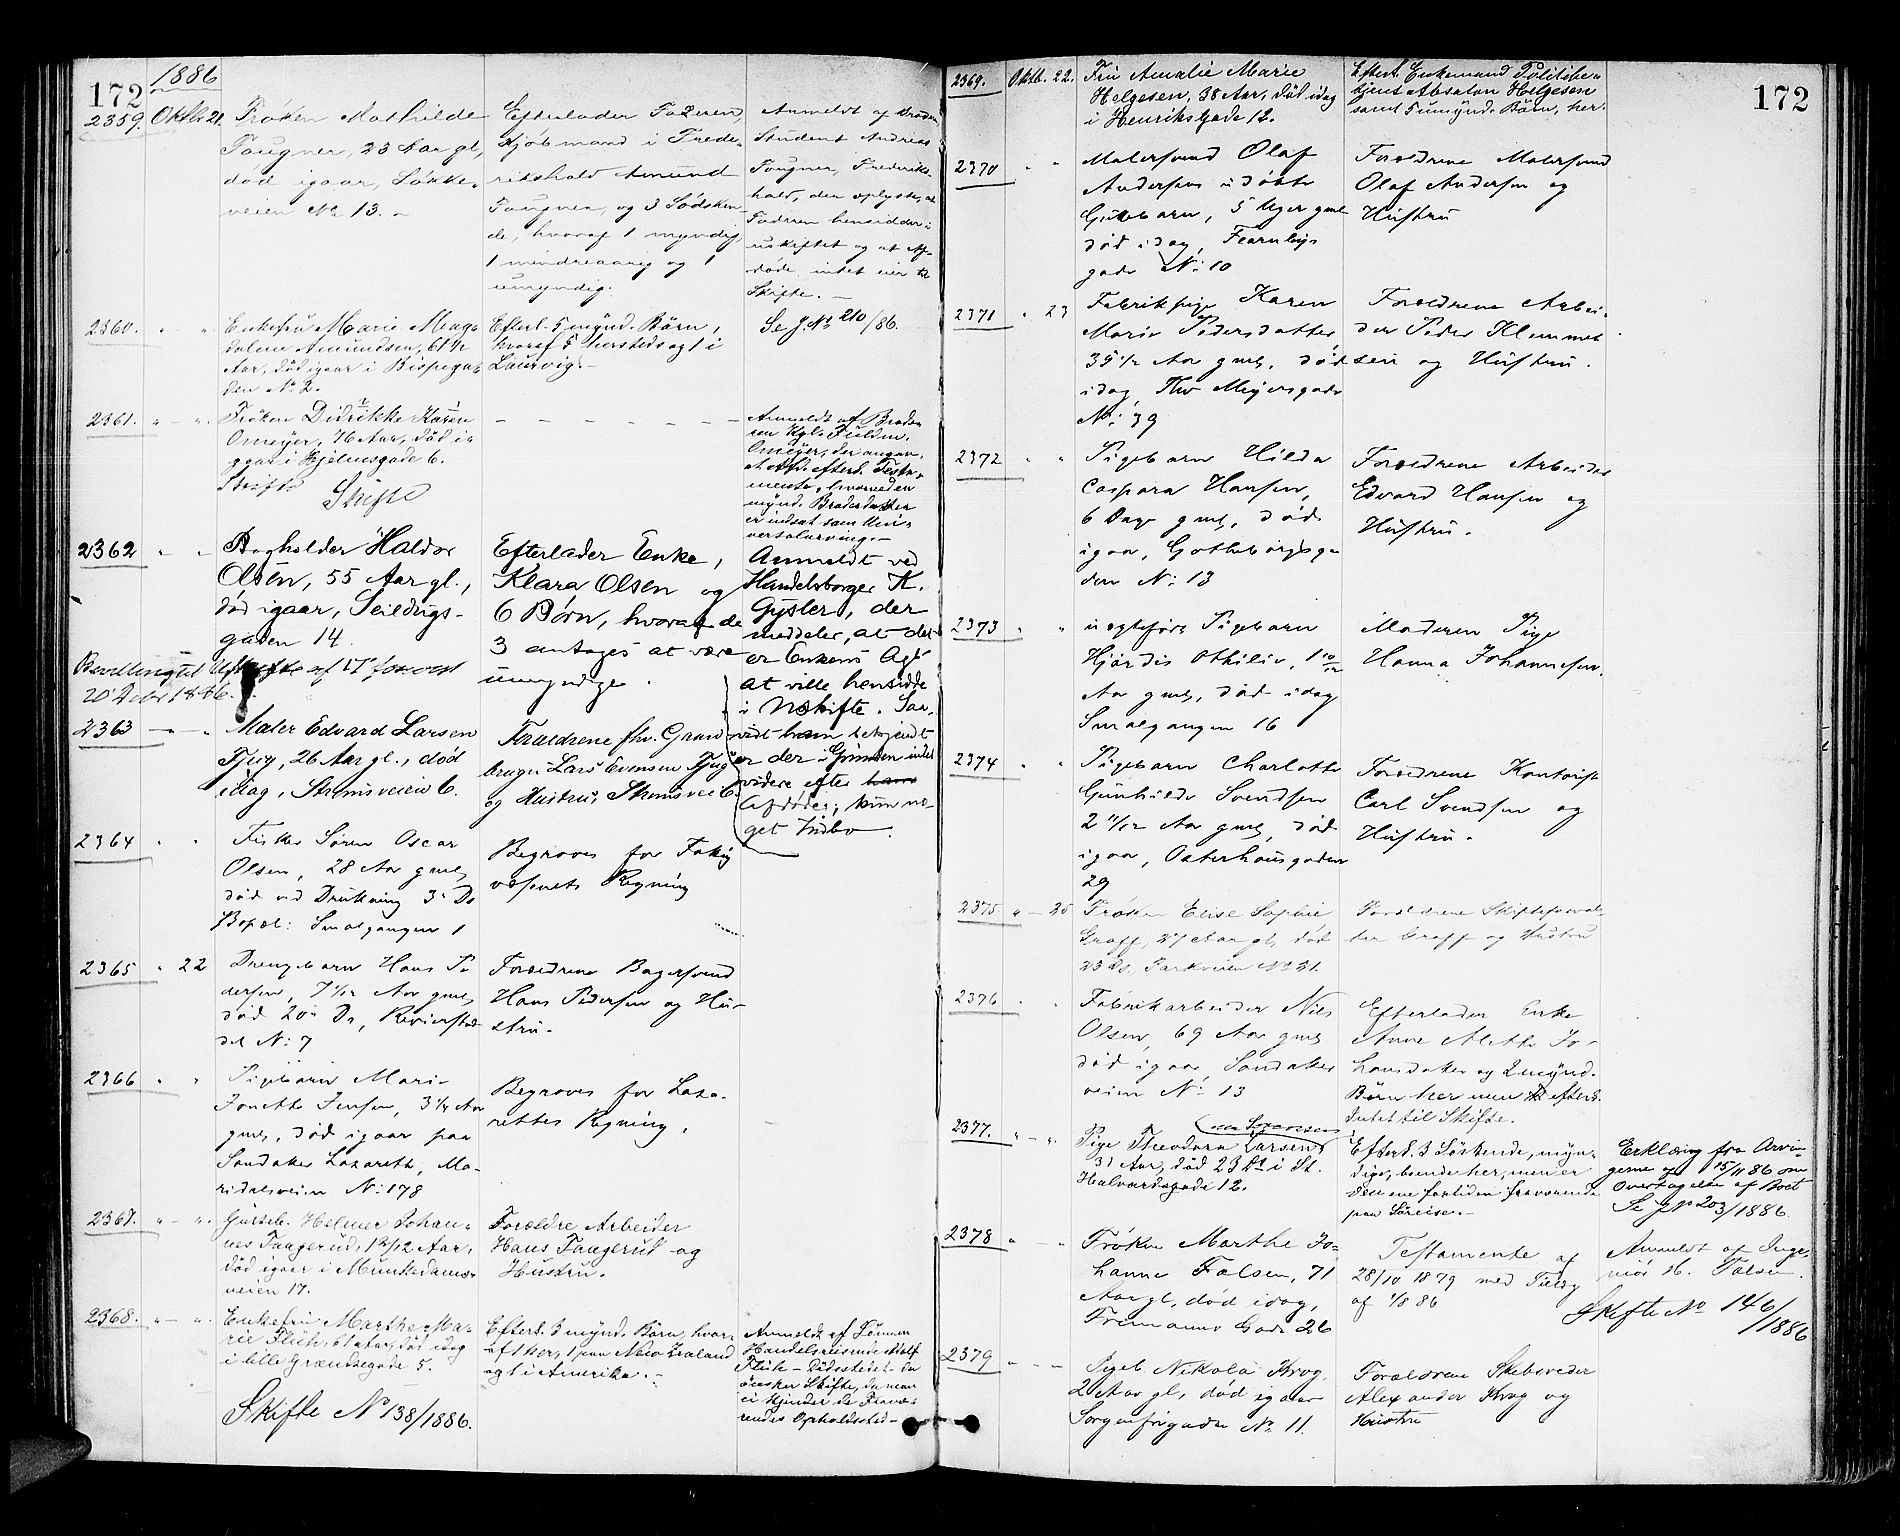 172
1886
2359. Oktb. 21. Frøken Mathilde
Fougner, 23 Aar gl.,
død igaar, Løkke-
veien No 13. -
Efterlader Faderen,
Kjøbmand i Frede-
rikshald Amund
Fougner, og 3 Sødsken-
de, hvoraf 1 myndig,
1 mindreaarig og 1
umyndig.
Anmeldt af Broder
Student Andreas
Fougner, Frederiks-
hald, der oplyste, at
Faderen hensidder i
uskiftet og at Af-
døde intet eier til
Skifte. -
2360. " " Enkefru Marie Mag-
dalene Amundsen, 61 1/2
Aar, død igaar i Bispega-
den No 2.
Efterl. 5 mynd. Børn,
hvoraf 5 herstedsog 1 i
Laurvig. -
Se J. No 210/86.
2361. " - " Frøken Didrikke Karine
Omejer, 76 Aar, død i-
gaar i Hjelmsgade 6.
Skifte
Skifte
- - - - - - -
Anmeldt af Brode-
ren Kgl. Fuldm.
Omejer, der angav,
at Afd. efterl. Testa-
mente, hvorved en
mynd. Broderdatter
er indsat som Uni-
versalarving. -
2362 - " Bogholder Haldor
Olsen, 55 Aar gl.,
død igaar, Seildugs-
gaden 14.
Efterlader Enke,
Klara Olsen og
6 Børn, hvoraf de
3 antages at være
umyndige.
Anmeldt ved
Handelsborger K.
Gysler, der
meddeler, at det
er Enkens Agt
at ville hensidde
i Uskifte. Saa-
vidt ham bekjendt
er der i Grunden intet
videre efter ham
Afdøde; kun no-
get Indbo.
Bevilling til Uskifte af
2363 - " Maler Edvard Larsen
Fjug, 26 Aar gl., død
idag, Strømsveien 6.
Forældrene fhv. Gaard-
bruger Lars Evensen Fjug
og Hustru, Strømsvei 6.
2364 " " Fisker Søren Oscar
Olsen, 28 Aar gml,
død ved Drukning 3' Ds
Bopæl: Smalgangen 1
Begraves for Fattig
væsenets Regning
2365 " 22 Drengebarn Hans Pe
dersen, 7 1/12 Aar gml,
død 20' Ds, Revierstræ-
det No 7
Forældrene Bagersvend
Hans Pedersen og Hu-
stru.
2366 " " Pigebarn Marie
Jonette Jensen, 3 1/4 Aar
gml, død igaar paa
Sandaker Lazareth, Ma-
ridalsveien No 178
Begraves for Laza-
rettes Regning.
2367. " - ". Gutteb. Helmer Johan-
nes Faagerud, 1 2/12 Aar,
død igaar i Munkedams-
veien 17.
Forældre Arbeider
Hans Faagerud og
Hustru.
2368. " - ". Enkefru Marthe Ma-
rie Flüh, 61 Aar, død idag
i lille Grændsegade 5.
Skifte No 138/1886.
Efterl. 3 mynd. Børn, hvor-
af 1 her, 1 paa New Zealand
og 1 i Amerika. -
Anmeldt af Sønnen
Handelsreisende Adolf
Flüh - Dødsstedet - der
ønsker Skifte, da man
ei kjender de Fravæ-
rendes Opholdssted -
172
2369. Oktb. 22. Fru Amalie Marie
Helgesen, 38 Aar, død idag
i Henriksgade 12.
Efterl. Enkemand Politibe-
tjent Absalon Helgesen
samt 5 umynd. Børn, her.
2370 " " Malersvend Olaf
Andersens udøbte
Guttebarn, 5 Uger gml
død idag, Fearnleys
gade No 10
Forældrene Malersvend
Olaf Andersen og
Hustru
2371 " 23 Fabrikpige Karen
Marie Pedersdatter
35 1/2 Aar gml, død
idag, Thv Meyersgade
No 39
Forældrene Arbei-
der Peder Klemmet
sen og Hustru.
2372 " " Pigebarn Hilda
Caspara Hansen,
6 Dage gml, død
igaar, Gøtheborgsga
den No 13
Forældrene Arbeider
Edvard Hansen og
Hustru.
2373 " " uægtefødt Pigebarn
Hjørdis Othilie, 1 10/12
Aar gml, død idag
Smalgangen 16
Moderen Pige
Hanna Johannesen.
2374 " " Pigebarn Charlotte
Gunhilde Svendsen
2 11/12 Aar gml, død
igaar, Osterhausgaden
29
Forældrene Kontorist
Carl Svendsen og
Hustru.
2375 " - 25 Frøken Elise Sophie
Graff, 27 Aar gl, død
23 Ds, Parkveien No 31.
Forældrene Skifteforval-
ter Graff og Hustru
2376 " " Fabrikarbeider Nils
Olsen, 69 Aar gml
død igaar, Sandaker
veien No 13
Efterlader Enke
Anne Alette Jo-
hansdatter og 2 mynd.
Børn her men efterl.
Intet til Skifte.
2377. " - " Pige Theodora Larsen
31 Aar, død 23 Ds i St.
Halvardsgade 12.
Efterl. 3 Søskende, myn-
dige, boende her, men er
den ene fortiden fraværende
paa Søreise. -
Erklæring fra Arvin-
gerne af 15/11 86 om
Overtagelse af Boet
Se J No 203/1886.
2378 " - - Frøken Marthe Jo-
hanne Falsen, 71
Aar gl, død idag,
Frimanns Gade 26
Testamente af
28/10 1879 med Tillæg
af 1/8 86
Anmeldt af Inge-
niør H. Falsen.
Skifte No 146/1886
2379 " - - Pigeb Nikola Krog,
2 Aar gl, død igaar
Sorgenfrigaden No 11.
Forældrene Skibsreder
Alexander Krog og
Hustru